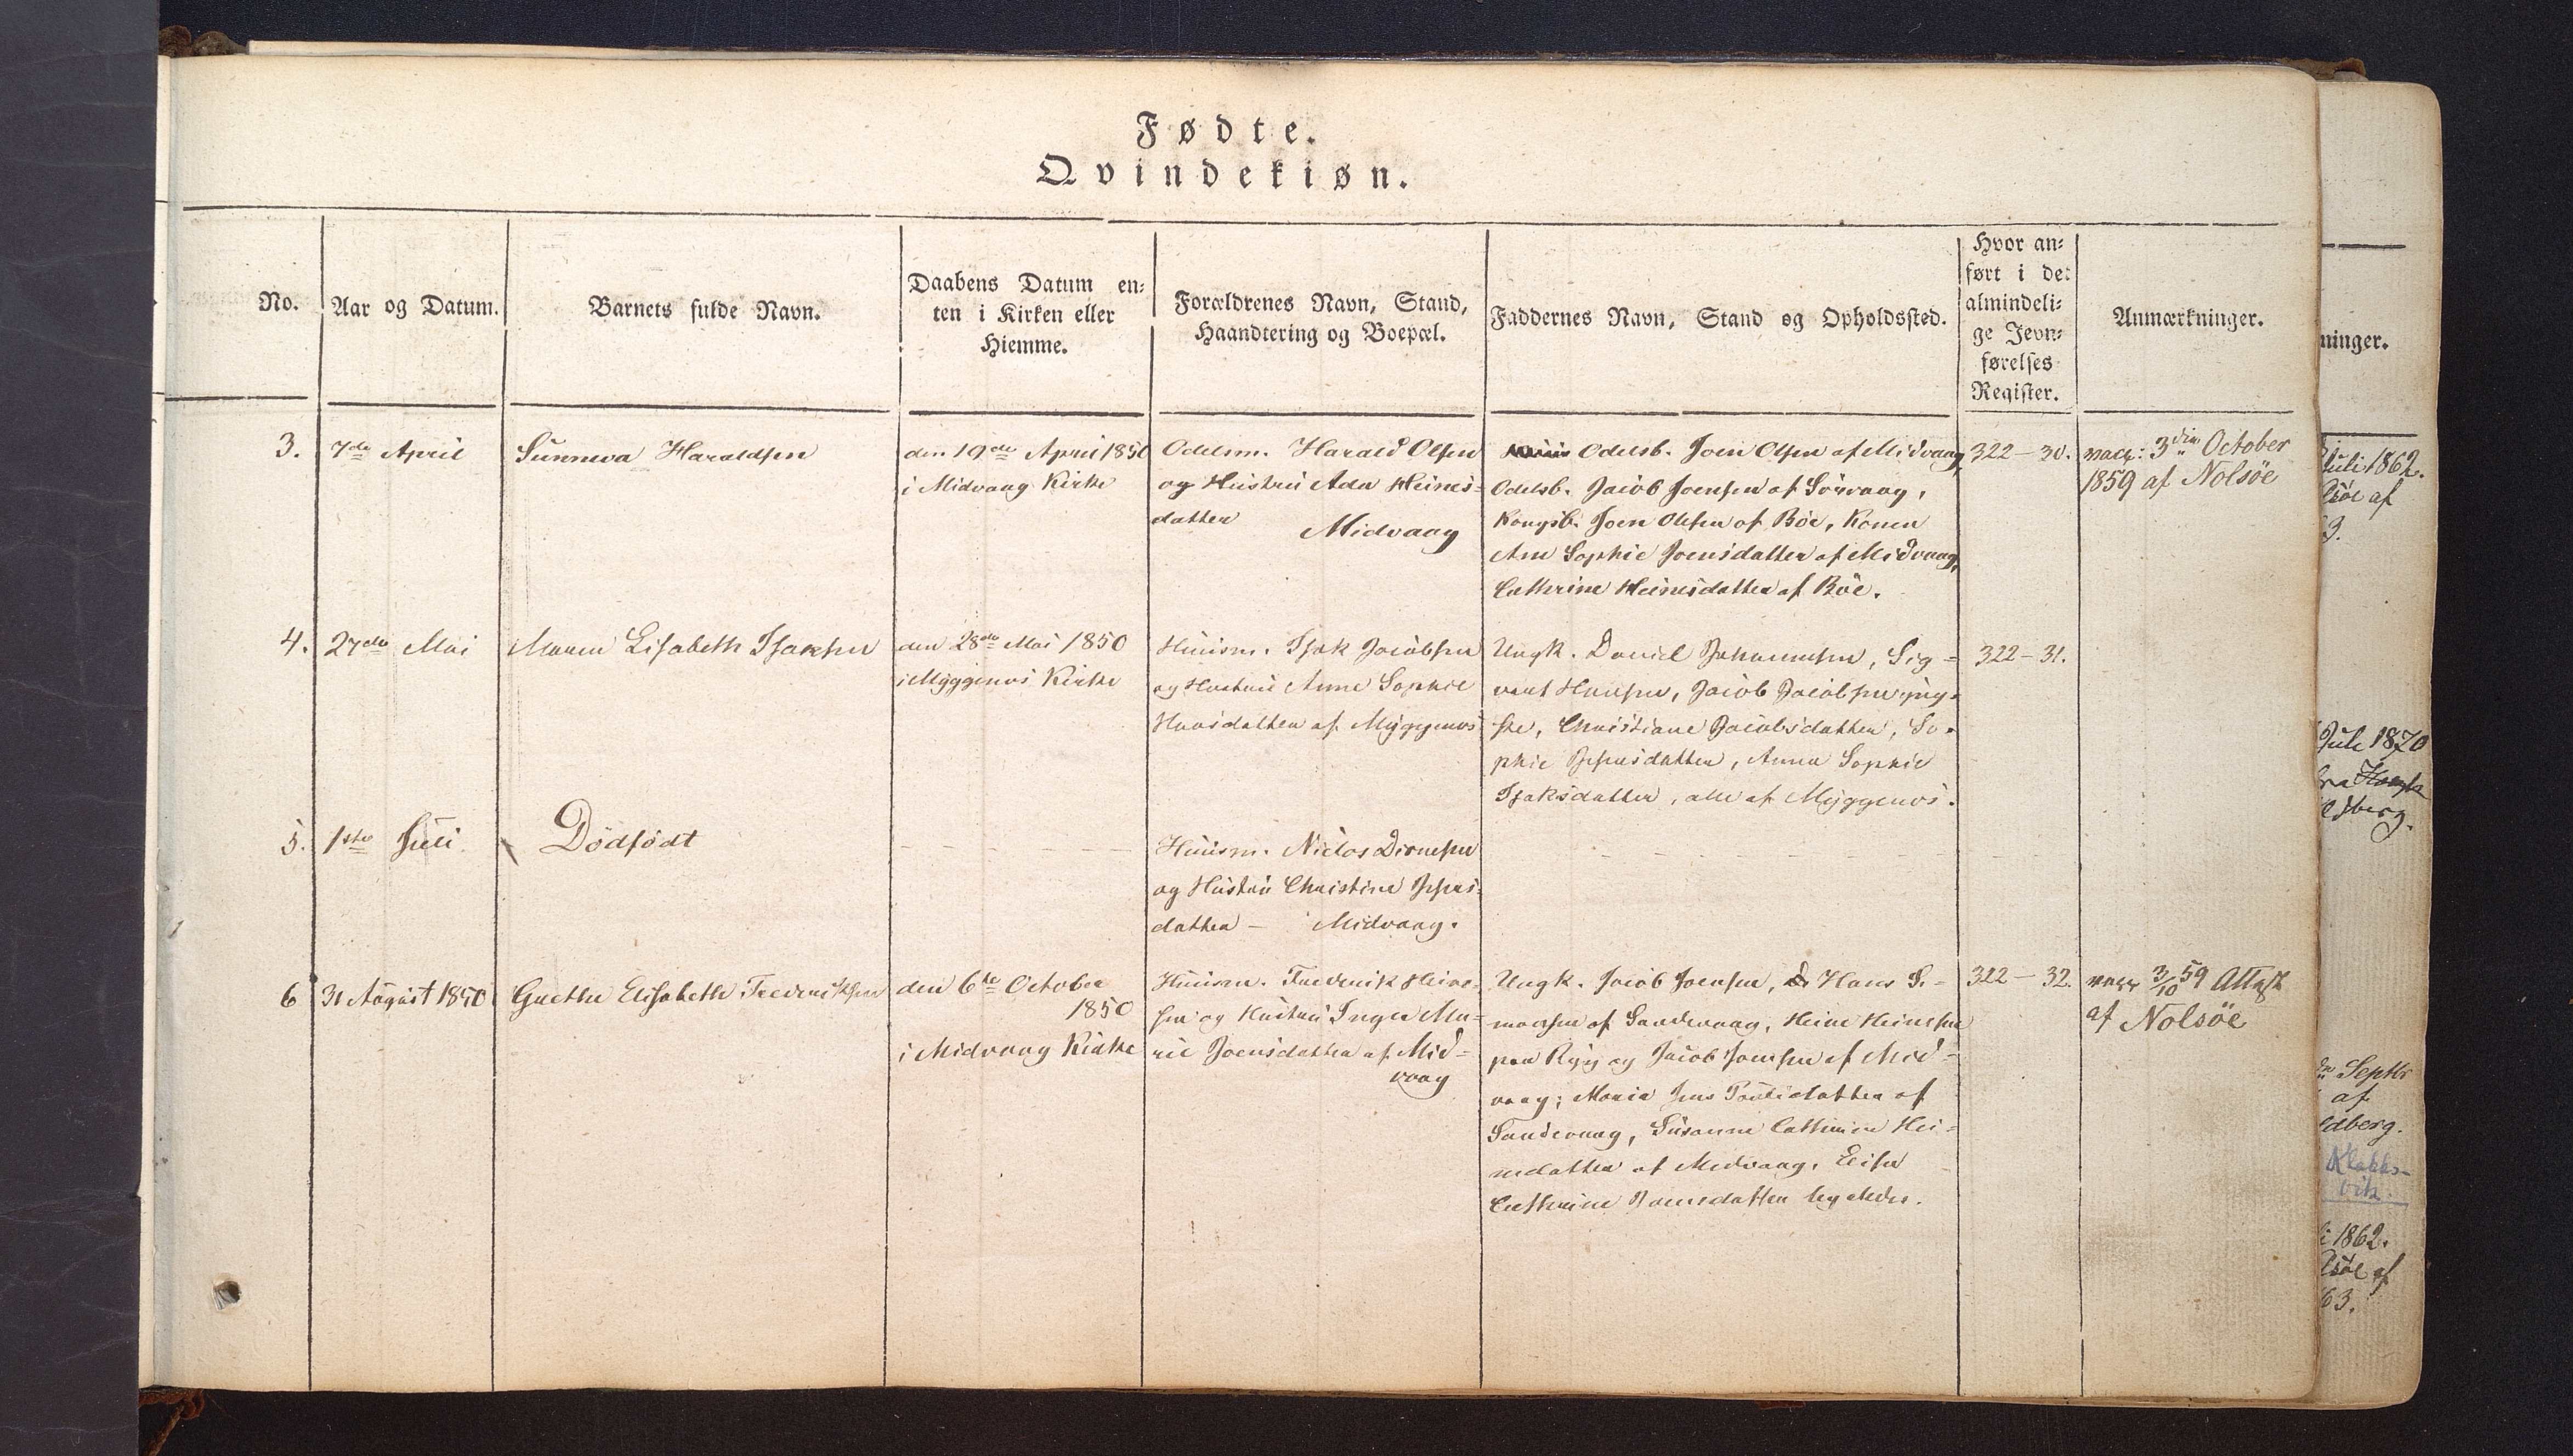 Fødte.
Qvindekiøn.
No.
Aar og Datum.
Barnets fulde Navn.
Daabens Datum en-
ten i Kirken eller
Hiemme.
Forældrenes Navn, Stand,
Haandtering og Boepæl.
Faddernes Navn, Stand og Opholdssted.
Hvor an-
ført i det
almindeli-
ge Jevn-
førelses
Register.
Anmærkninger.
3.
7de April
Sunneva Haraldsen
den 19de April 1850
i Midvaag Kirke
Odelsm. Harald Olsen
og Hustru Ada Heines-
datter
Midvaag
Odelsb. Joen Olsen af Midvaag,
Odelsb. Jacob Joensen af Sörvaag,
Kongsb. Joen Olsen af Böe, Konen
Ane Sophie Joensdatter af Midvaag,
Cathrine Heinesdatter af Böe.
322 – 30.
vacc: 3die October
1859 af Nolsöe
4.
27de Mai
Maren Elisabeth Isaksen
den 28de Mai 1850
i Myggenæs Kirke
Huusm. Isak Jacobsen
og Hustru Anne Sophie
Hansdatter af Myggenæs
Ungk. Daniel Johannesen, Sig-
vart Hansen, Jacob Jacobsen yng-
ste, Christiane Jacobsdatter, So-
phie Jespersdatter, Anna Sophie
Isaksdatter, alle af Myggenæs.
322 – 31.
5.
1ste Juli
Dödfödt
Huusm. Niclas Dionesen
og Hustru Christine Jespers-
datter – Midvaag.
6
31 August 1850
Grethe Elisabeth Frederiksen
den 6te October
1850
i Midvaag Kirke
Huusm. Frederik Heine-
sen og Hustru Inger Ma-
rie Joensdatter af Mid-
vaag
Ungk. Jacob Joensen, Hans S.-
monsen af Sandevaag, Heine Heinesen
paa Ryg og Jacob Joensen af Mid-
vaag; Maria Jens Poulsdatter af
Sandevaag, Susanne Cathrine Hei-
nedatter af Midvaag, Elise
Cathrine Joensdatter
322 – 32.
vacc 3/10 59 Attest
af Nolsöe
ninger.
Juli 1862.
lsöe af
3.
Juli 1870
ra
lsberg.
Septbr
af
ldberg.
Klaks-
vik.
i 1862.
lsöe af
63.